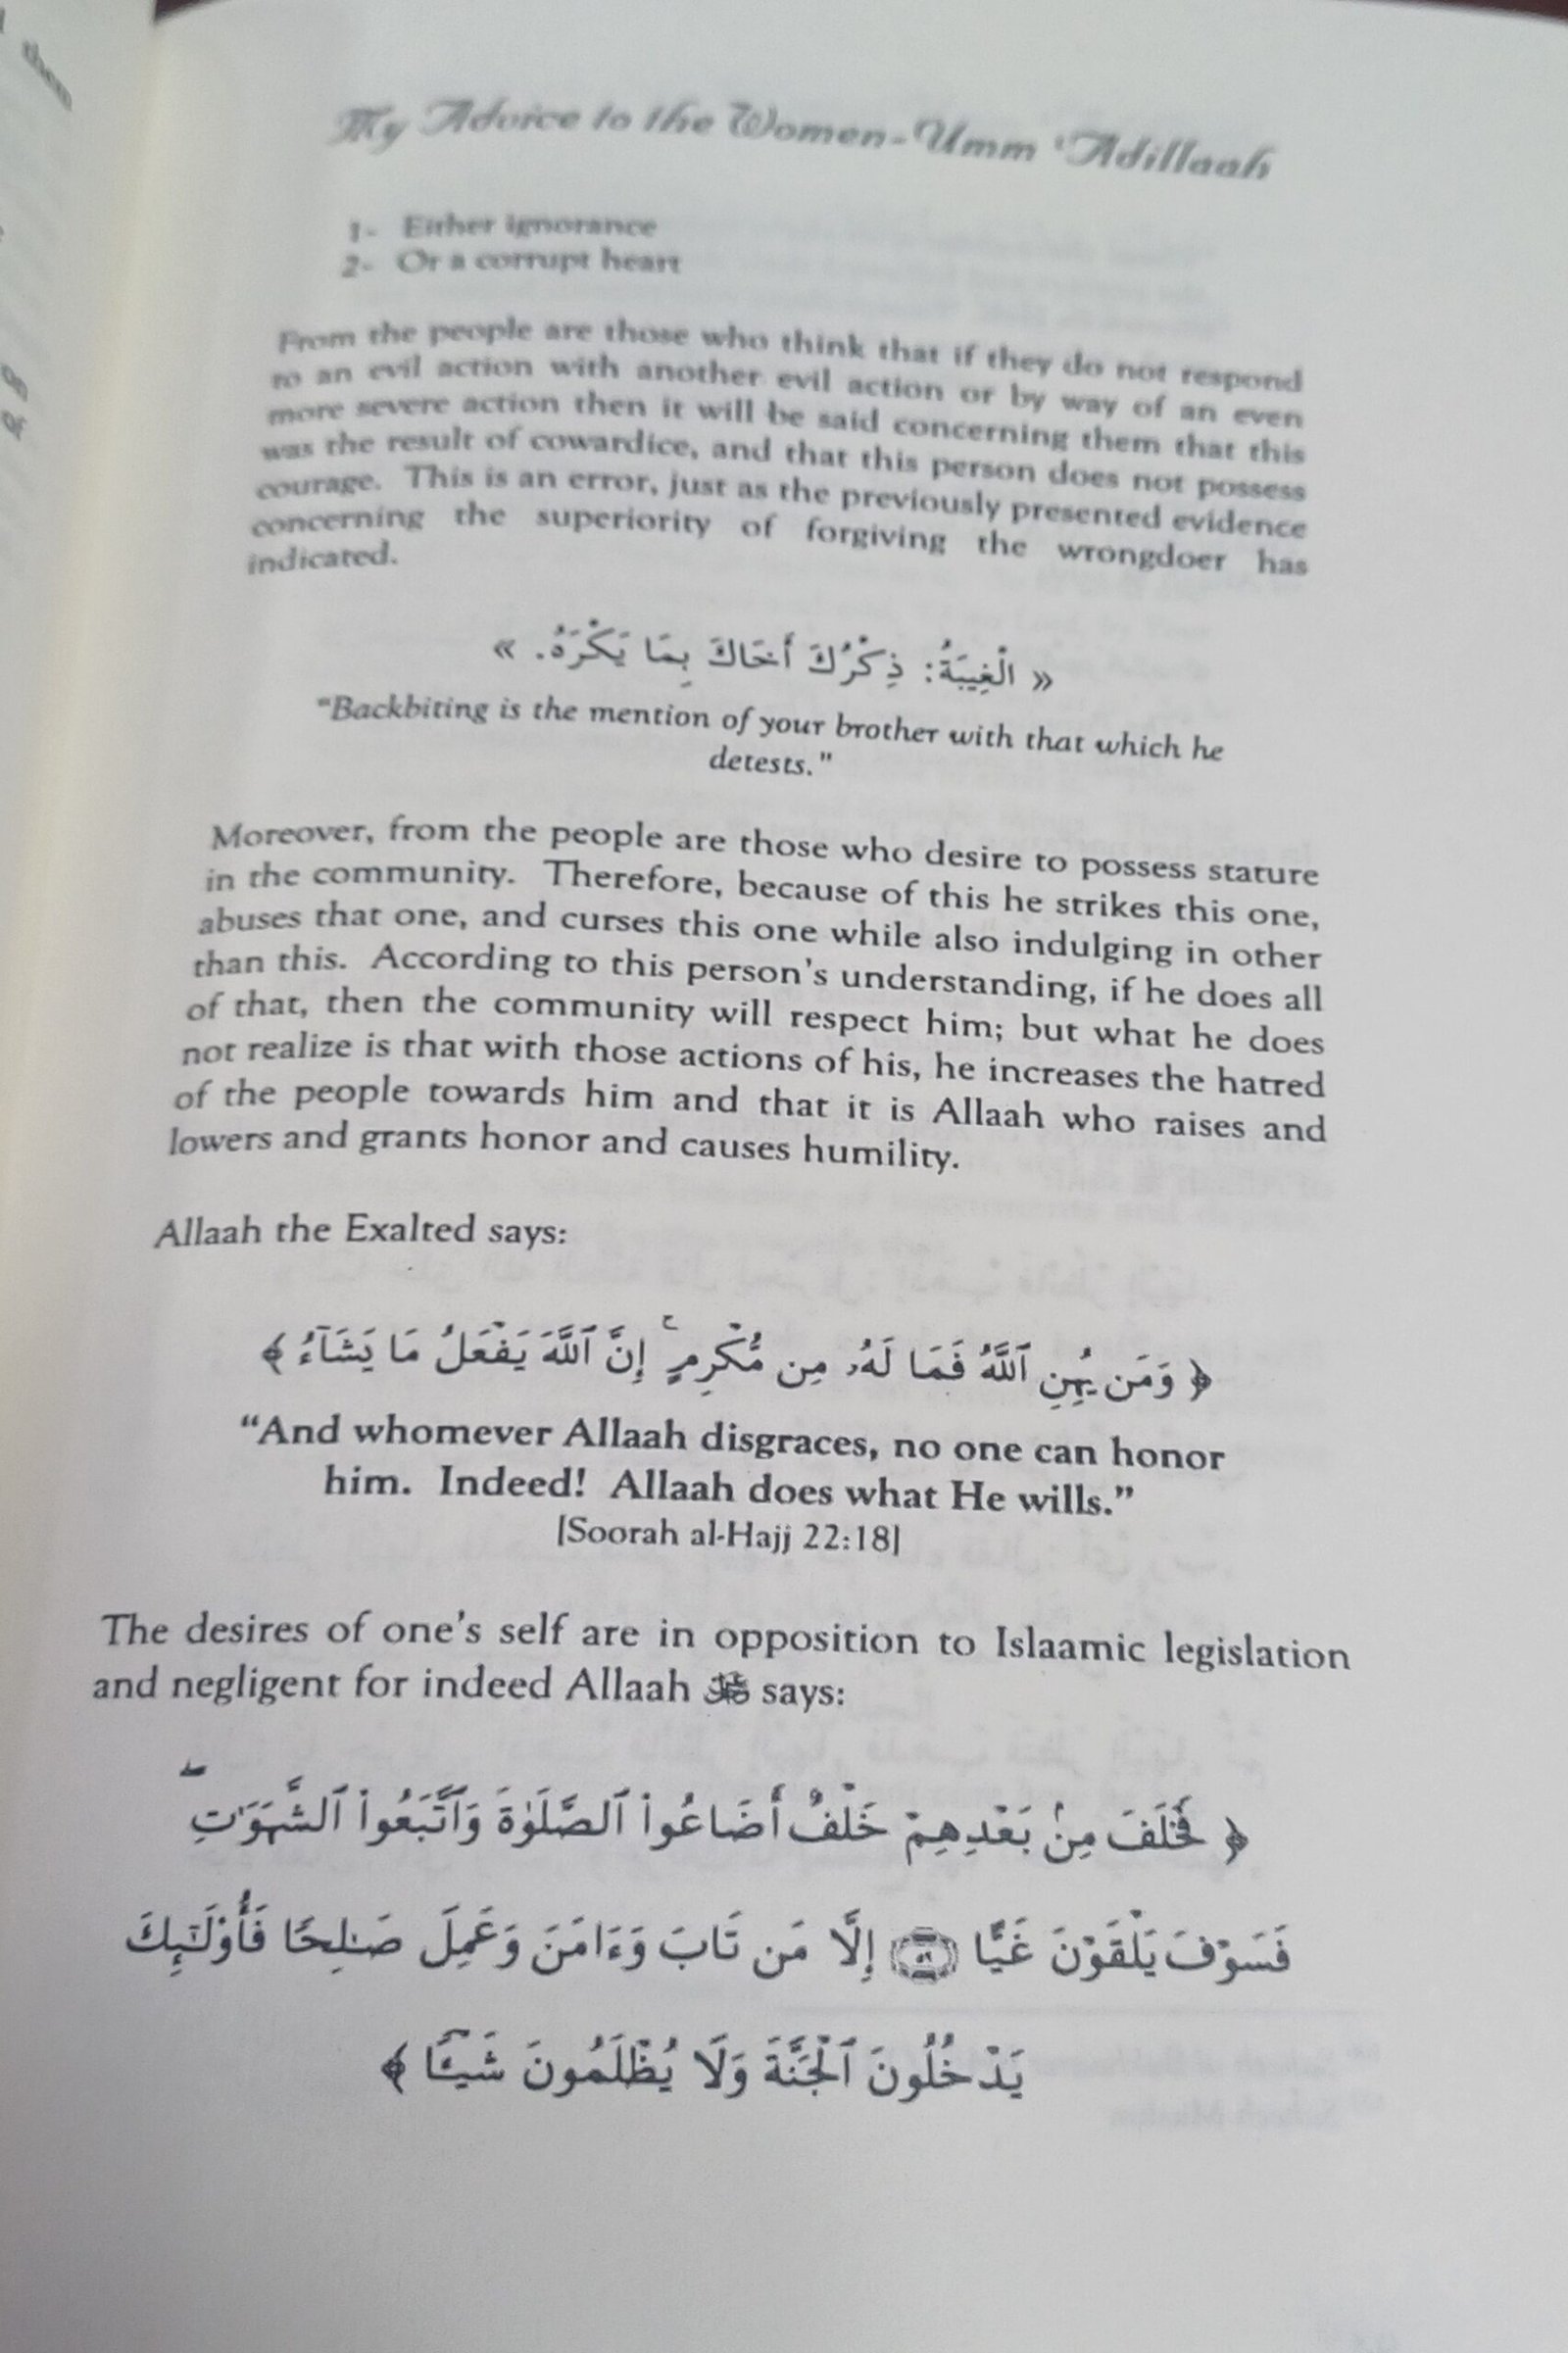 them
on
of
My Advice to the Women-Umm 'Adillaah
1- Either ignorance
2- Or a corrupt heart
From the people are those who think that if they do not respond
to an evil action with another evil action or by way of an even
more severe action then it will be said concerning them that this
was the result of cowardice, and that this person does not possess
courage. This is an error, just as the previously presented evidence
concerning the superiority of forgiving the wrongdoer has
indicated.
« الْغِيبَةُ: ذِكْرُكَ أَخَاكَ بِمَا يَكْرَهُ. »
"Backbiting is the mention of your brother with that which he
detests."
Moreover, from the people are those who desire to possess stature
in the community. Therefore, because of this he strikes this one,
abuses that one, and curses this one while also indulging in other
than this. According to this person's understanding, if he does all
of that, then the community will respect him; but what he does
not realize is that with those actions of his, he increases the hatred
of the people towards him and that it is Allaah who raises and
lowers and grants honor and causes humility.
Allaah the Exalted says:
﴿ وَمَن يُهِنِ ٱللَّهُ فَمَا لَهُۥ مِن مُّكْرِمٍ ۚ إِنَّ ٱللَّهَ يَفْعَلُ مَا يَشَآءُ ﴾
"And whomever Allaah disgraces, no one can honor
him. Indeed! Allaah does what He wills."
[Soorah al-Hajj 22:18]
The desires of one's self are in opposition to Islaamic legislation
and negligent for indeed Allaah says:
﴿ فَخَلَفَ مِنۢ بَعْدِهِمْ خَلْفٌ أَضَاعُوا۟ ٱلصَّلَوٰةَ وَٱتَّبَعُوا۟ ٱلشَّهَوَٰتِ ۖ
فَسَوْفَ يَلْقَوْنَ غَيًّا ۝٥٩ إِلَّا مَن تَابَ وَءَامَنَ وَعَمِلَ صَـٰلِحًا فَأُو۟لَـٰٓئِكَ
يَدْخُلُونَ ٱلْجَنَّةَ وَلَا يُظْلَمُونَ شَيْـًٔا ﴾